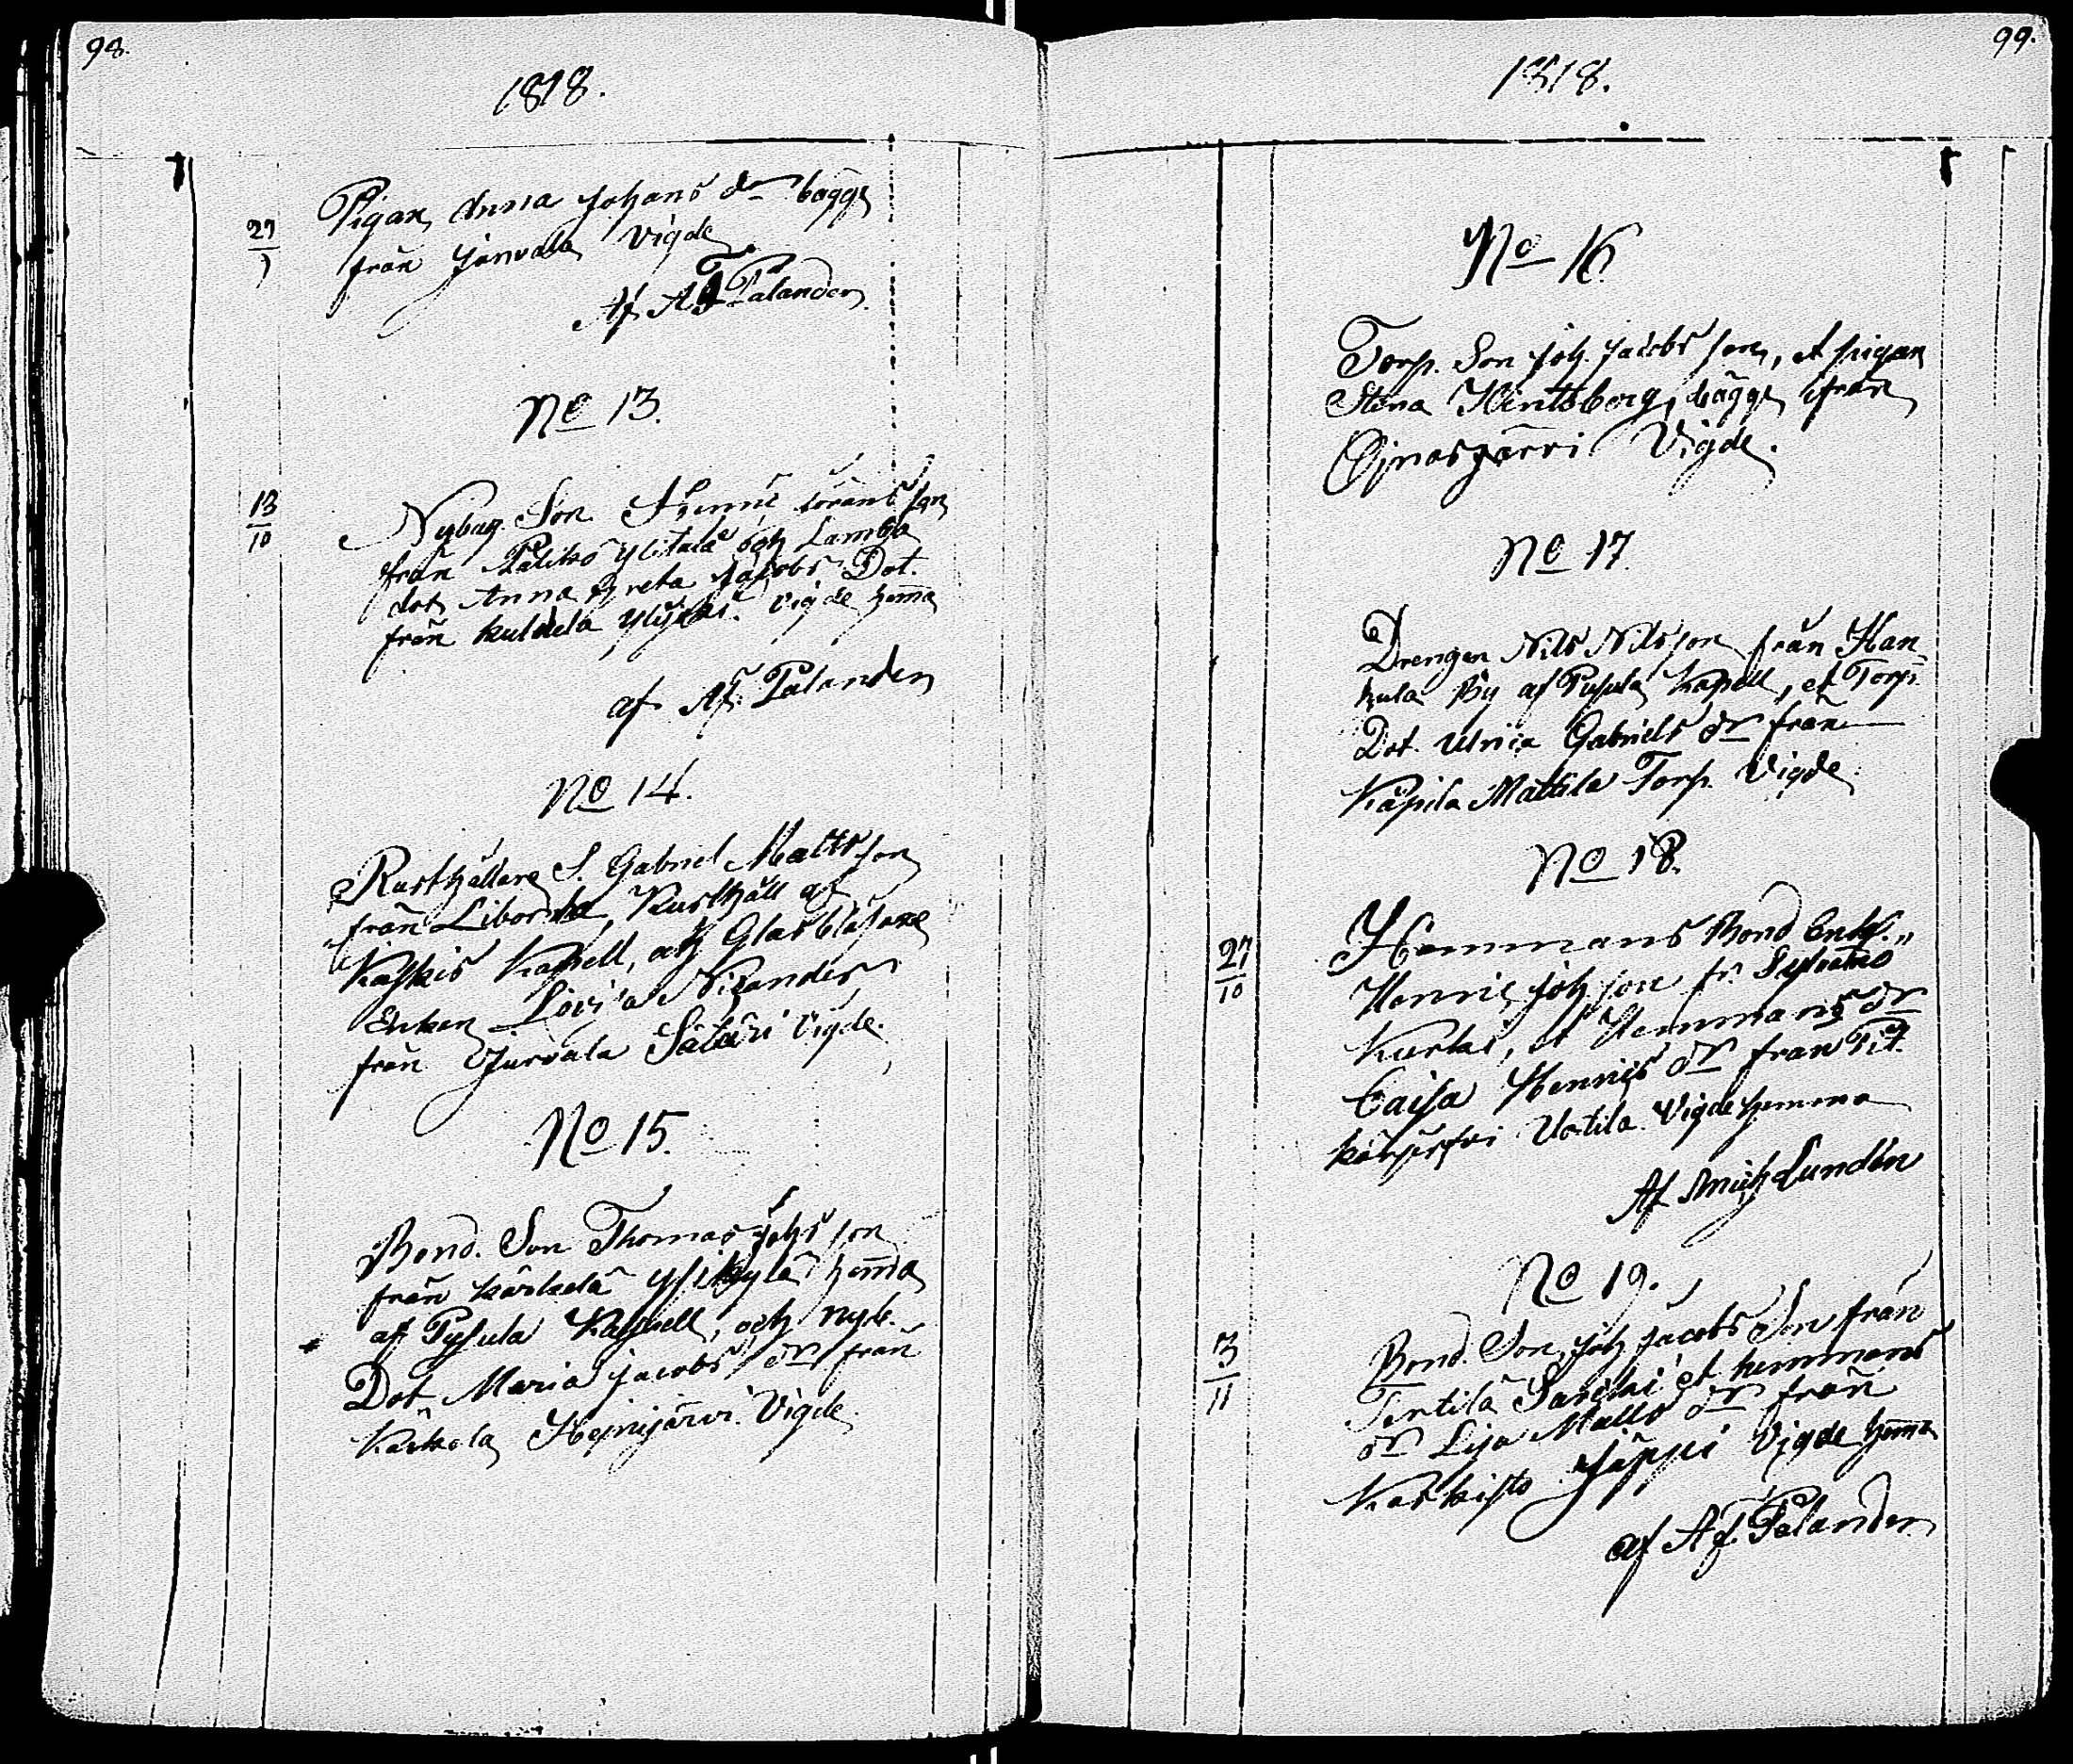 98.
1818.
27/7
Pigan Anna Johans dr bägge
från Jänvala Vigde
Af A F Palander
No 13.
13/10
Nybyg. Son Henric Görans son
från Palikö Ylitalä och Lambo
dot Anna Greta Jacobs Dot.
från kulklela Ylijoki. Vigde hema
af A f. Palander
No 14.
Rusthållare S. Gabriel Matts son
från Rusthåll af
Kapell, och Glasblåsare
Enkan Lovisa Nizander
från Jurvala Säteri Vigde.
No 15.
Bond. Son Thomas Johs son
från kärkelä Ylikylä hema
af Pusula Kapell, och nyb.
Dot Maria Jacobs dr från
Kärkola Hejnijärvi. Vigde
99.
1818.
No 16
Torp. Son Joh. Jacobs son, et pigan
Stina Hintsberg, bägge från
Ojnasjärvi Vigde.
No 17.
Drengen Nils Nils son från Han
hula By af Pusula Kapell, et Torp.
Dot. Ulrica Gabriels dr från
Käpila Mattila Torp. Vigde
No 18.
27/10
Hemmans Bond Enkl.
Henric Joh son fr.
Kurki, et Hemmans dr
Caisa Henrics dr från Pit
käjärfvi Uotila Vigde hemma
Af Mich Lundén
No 19.
3/11
Bond. Son Joh Jacobs Son från
Tertilä et hemmans
dr Lisa Matts dr från
Karkisto Jäppi Vigde hema
af A f. Palander